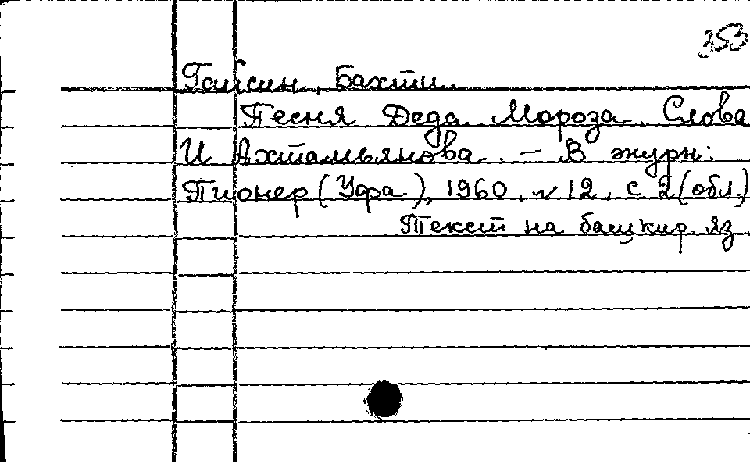 353
Гайсин, Бахти.
Песня Деда Мороза. Слова
И Ахтамьянова. – В журн:
Пионер (Уфа), 1960, № 12, с 2 (обл.)
Текст на башкир. яз.